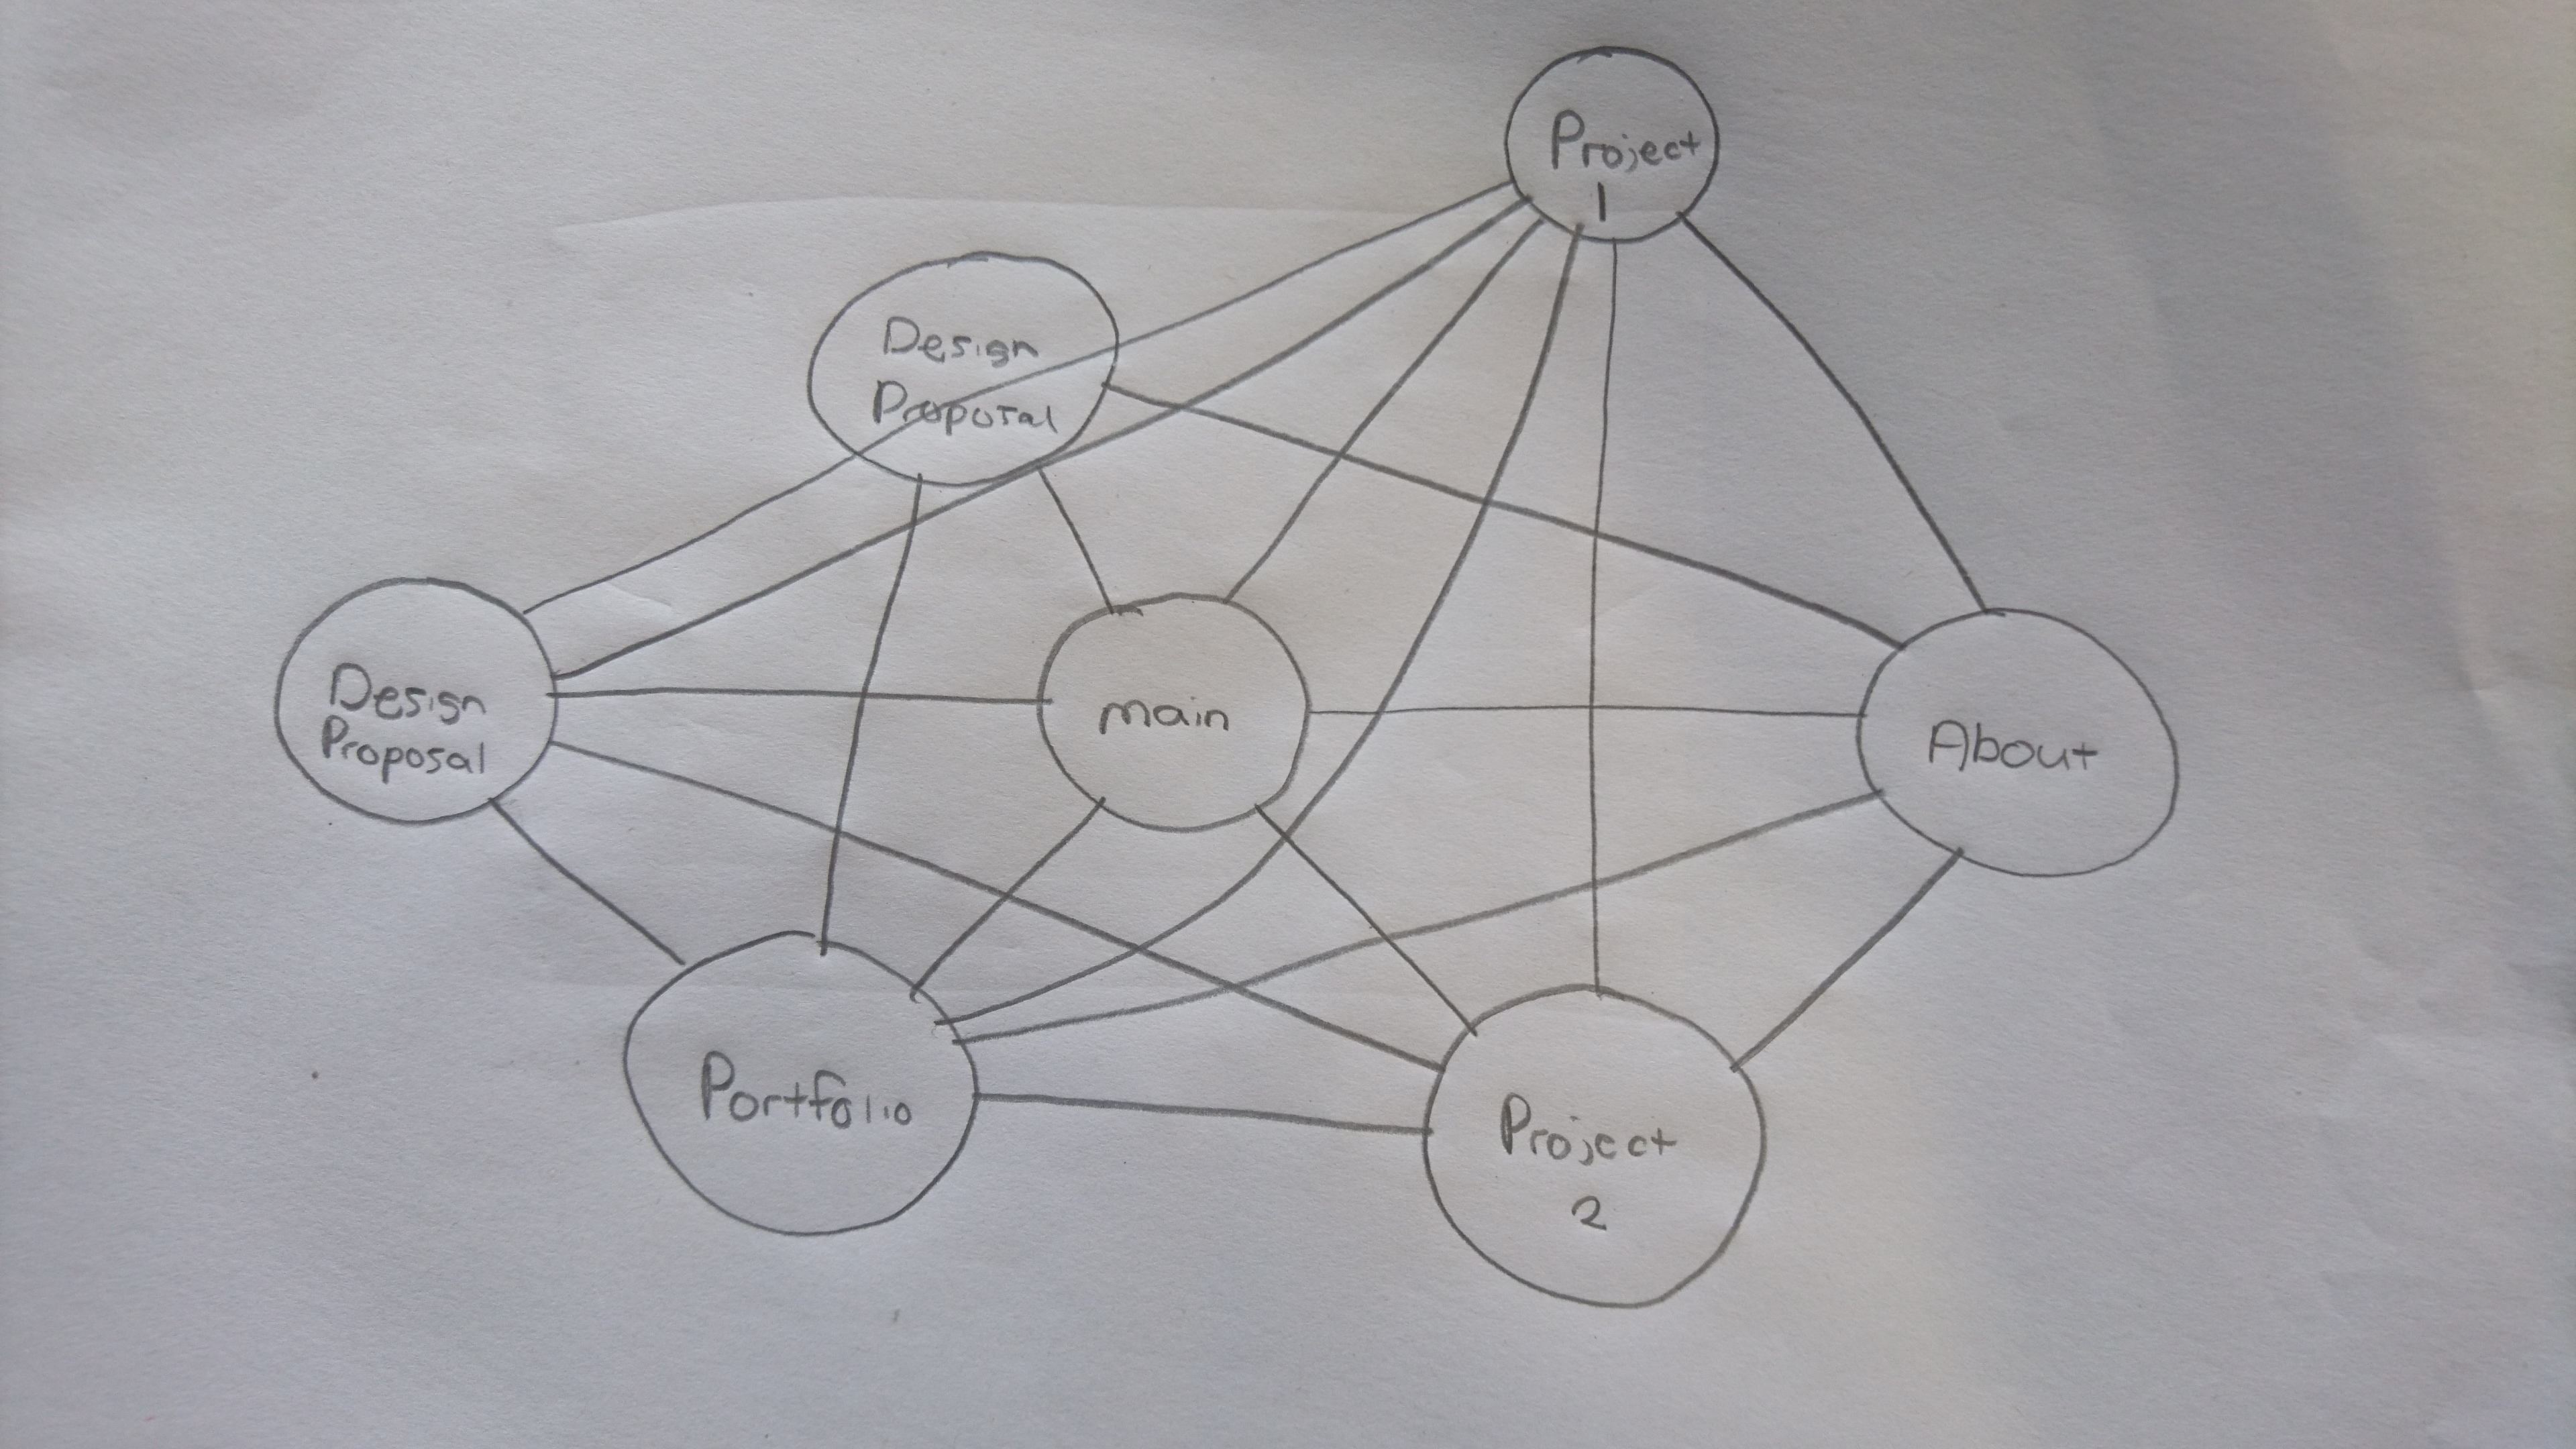 Project
1
Design
Proposal
Design
Proposal
main
About
Portfolio
Project
2